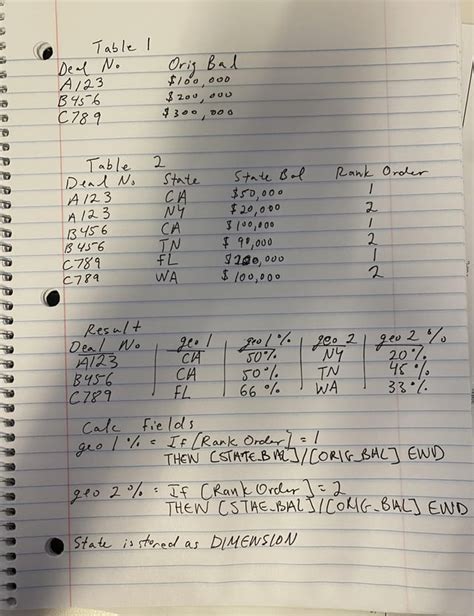 Table 1
Deal No Orig Bal
A123 $100,000
B456 $200,000
C789 $300,000
Table 2
Deal No State State Bal Rank Order
A123 CA $50,000 1
A123 NY $20,000 2
B456 CA $100,000 1
B456 TN $90,000 2
C789 FL $200,000 1
C789 WA $100,000 2
Result
Deal No geo 1 geo 1% geo 2 geo 2 %
A123 CA 50% NY 20%
B456 CA 50% TN 45%
C789 FL 66% WA 33%
Calc Fields
geo 1% = If [Rank Order] = 1
THEN [STATE_BAL]/[ORIG_BAL] END
geo 2% = If [Rank Order] = 2
THEN [STAE_BAL]/[ORIG_BAL] END
State is stored as DIMENSION